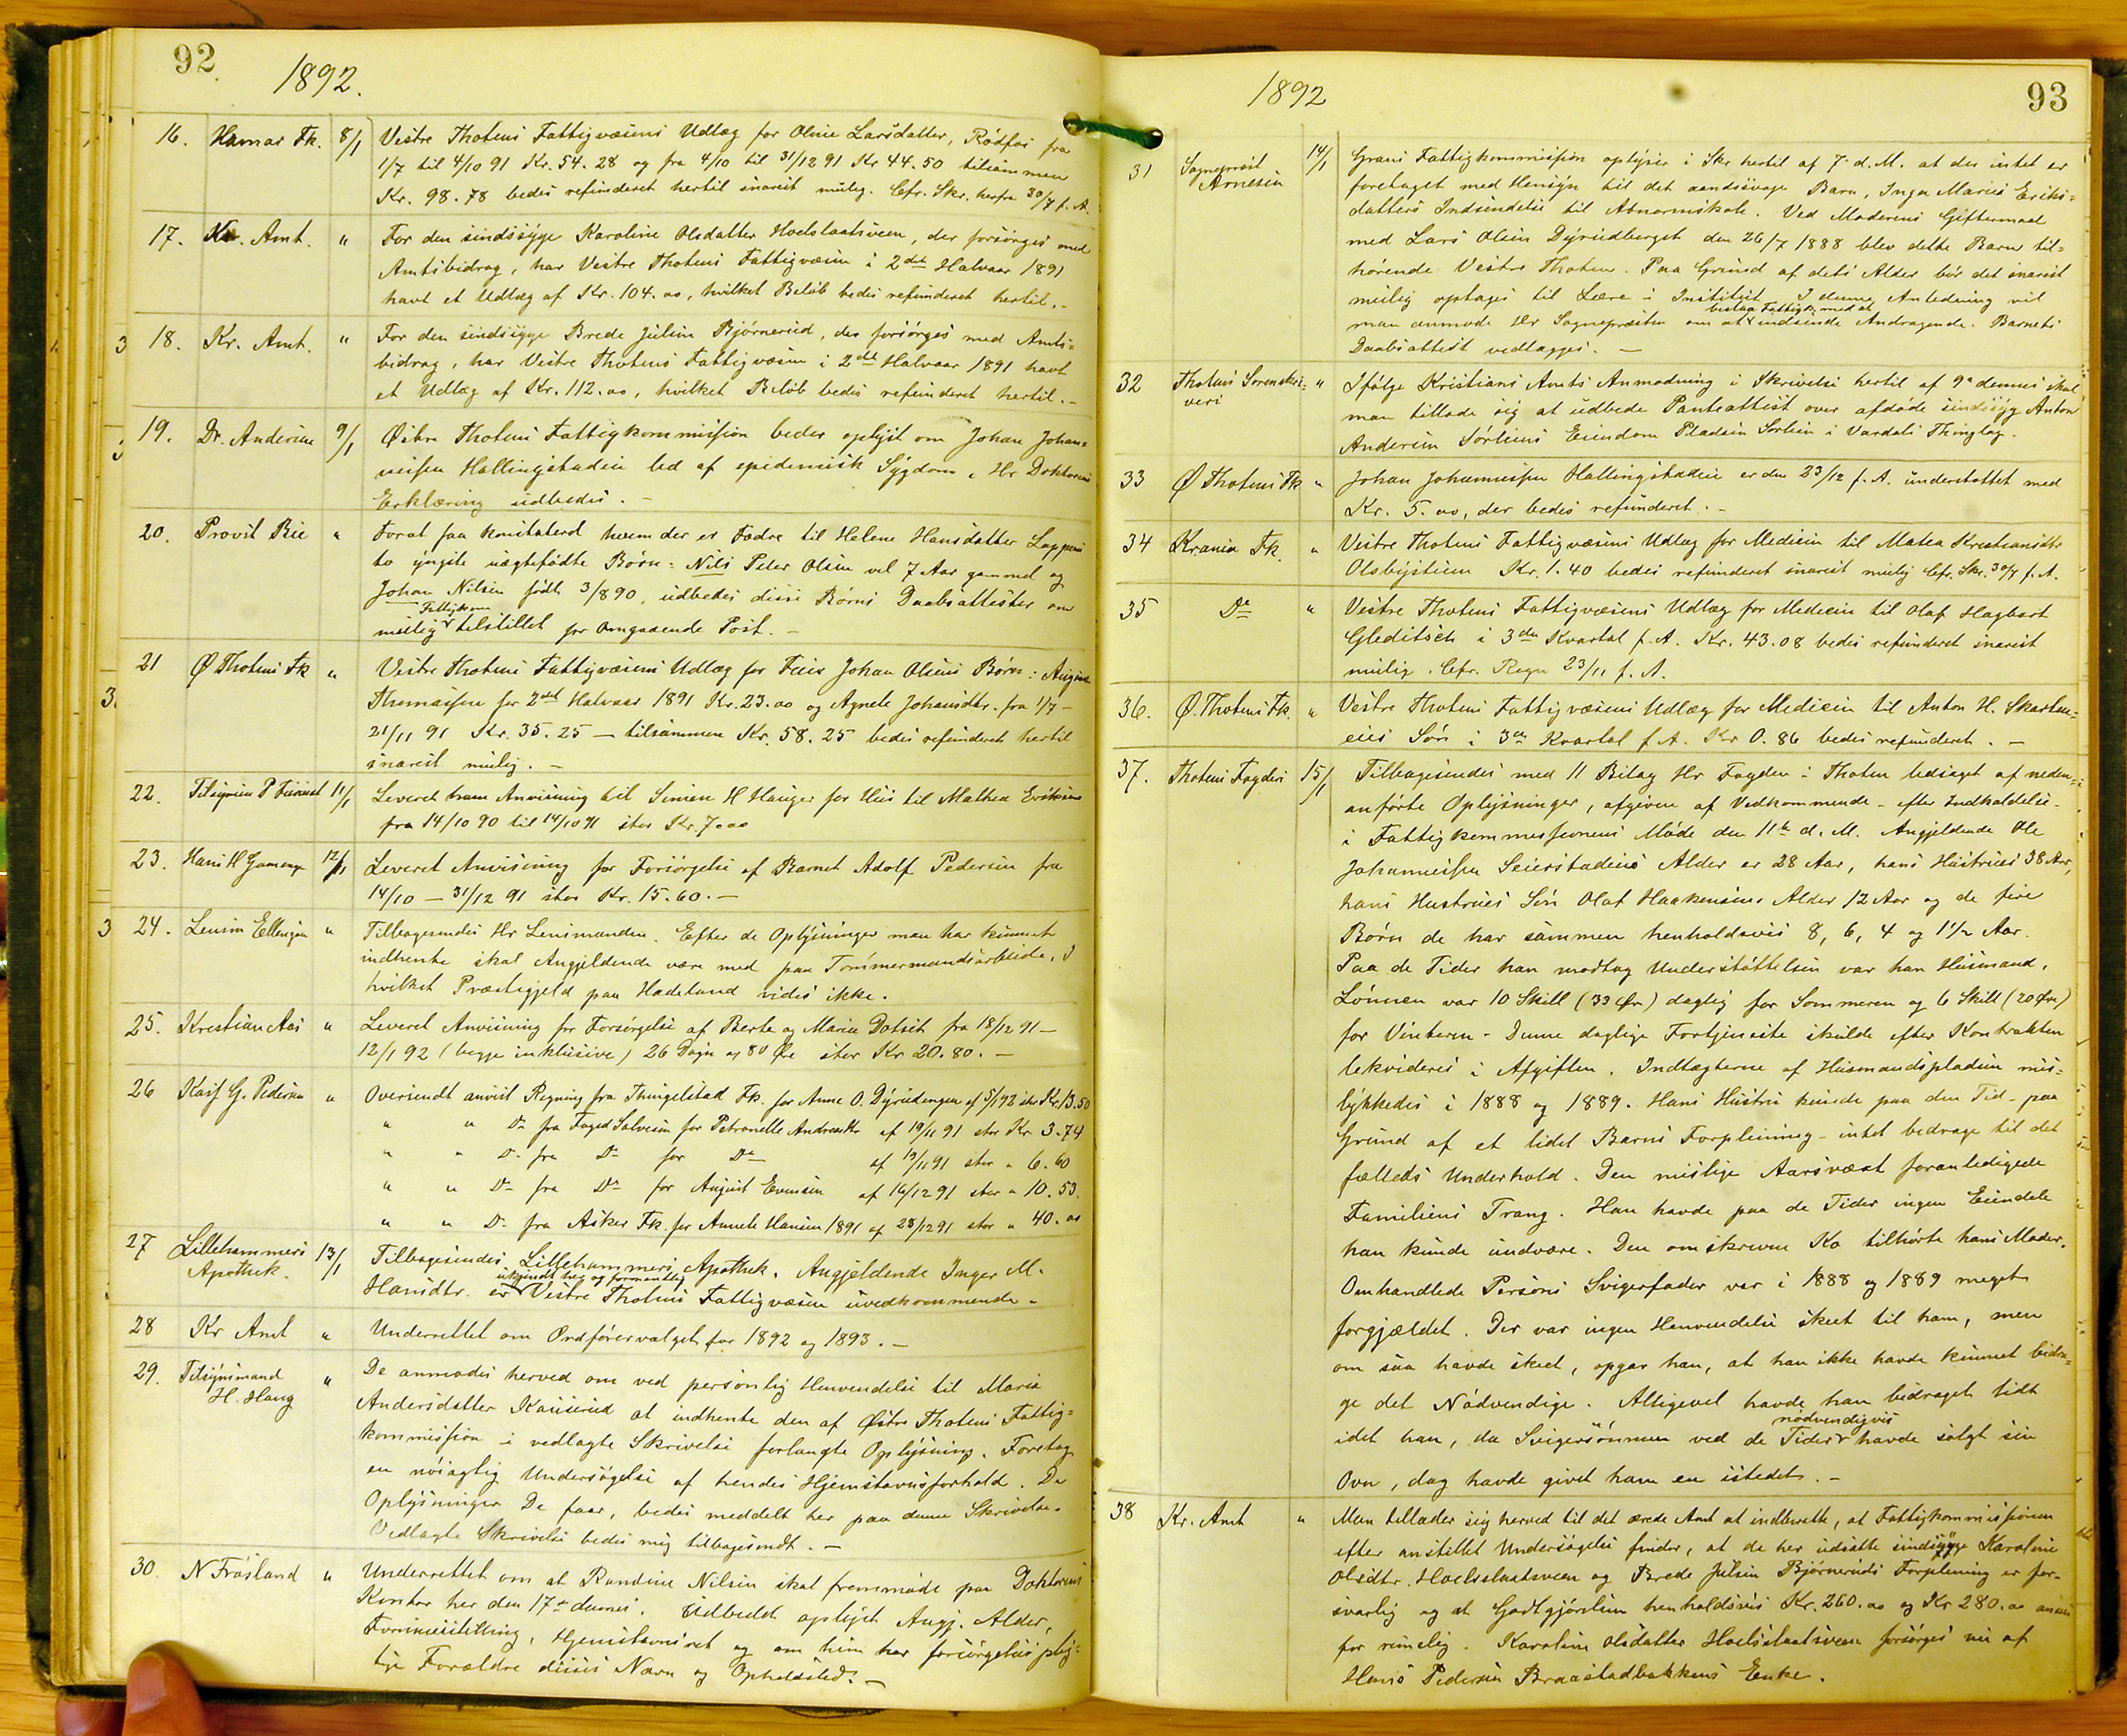 92
1892.
16. Hamar Fk. 8/1 Vestre Thotens Fattigvæsens Udlæg for Oline Larsdatter, Rödfos fra
1/7 til 4/10 91 Kr. 54.28 og fra 4/10 til 31/12 91 Kr 44.50 tilsammen
Kr. 98.78 bedes refunderet hertil snarest mulig. Cfr. Skr. herfra 30/7 f. A.
17. Kr. Amt. " For den sindssyge Karoline Olsdatter Hoelslaatsveen, der forsørges med
Amtsbidrag, har Vestre Thotens Fattigvæsen i 2det Halvaar 1891
havt et Udlæg af Kr. 104.00, hvilket Beløb bedes refunderet hertil.-
3 18. Kr. Amt. " For den sindssyge Brede Julsen Bjørnerud, der forsørges med Amts=
bidrag, har Vestre Thotens Fattigvæsen i 2det Halvaar 1891 havt
et Udlæg af Kr. 112.00, hvilket Beløb bedes refunderet hertil.-
19. Dr. Andersen 9/1 Østre Thotens Fattigkommission beder oplyst om Johan Johan=
nessen Hallingstadeie led af epidemisk Sygdom. Hr Doktorens
Erklæring udbedes.-
20. Provst Bie " Forat faa konstateret hvem der er Fædre til Helene Hansdatter Lappens
to yngste uægtefødte Børn: Nils Peter Olsen vel 7 Aar gammel og
Johan Nilsen født 3/8 90, udbedes disse Børns Daabsattester om
Fattigkom
mulig tilstillet pr omgaaende Post.-
21 Ø Thotens Fk " Vestre Thotens Fattigvæsens Udlæg for Johan Olsens Børn: August
Thomassen for 2det Halvaar 1891 Kr. 23.00 og Agnete Johansdtr. fra 1/7-
3. 21/11 91 Kr. 35.25 - tilsammen Kr. 58.25 bedes refunderet hertil
snarest mulig.-
22. Tilsynsm P 11/1 Leveret ham Anvisning til Simen H Hauger for Hus til Mathea Eriksen
fra 14/10 90 til 14/10 91 stor Kr. 7.00
23. Hans H 12/1 Leveret Anvisning for Forsørgelse af Barnet Adolf Pedersen fra
14/10 - 31/12 91 stor Kr. 15.60.-
3 24. Lensm Ellengsen " Tilbagesendes Hr Lensmanden. Efter de Oplysninger man har kunnet
indhente skal Angjeldende være med paa Tømmermandsarbeide. I
hvilket Præstegjeld paa Hadeland vides ikke.
25. Krestian Aas " Leveret Anvisning for Forsørgelse af Berte og Maria Dotset fra 18/12 91 -
12/1 92 (begge inklusive) 26 Døgn og 80 Øre stor Kr 20.80.-
26 Kasf G. Pedersen " Oversendt anvist Regning fra Thingelstad Fk. for Anne O. Dyrudengen af 5/1 92 stor Kr. 13.50
" " Do fra Foged Salvesen for Petronelle Andreasdtr af 19/11 91 stor Kr 3.74
" " Do fra Do for Do af 19/11 91 stor " 6.60
" " Do fra Do for August Evensen af 16/12 91 stor " 10.53.
" " Do fra Asker Fk. for Annete Hansen 1891 af 28/12 91 stor " 40.00
27 Lillehammers 13/1 Tilbagesendes Lillehammers Apothek. Angjeldende Inger M.
Apothek. ukjendt her og formentlig
Hansdtr. er Vestre Thotens Fattigvæsen uvedkommende.-
28 Kr Amt " Underrettet om Ordførervalget for 1892 og 1893.-
29. Tilsynsmand " De anmodes herved om ved personlig Henvendelse til Maria
H. Haug
Andersdatter Kauserud at indhente den af Østre Thotens Fattig=
kommission i vedlagte Skrivelse forlangte Oplysning. Foretag
en nøiagtig Undersøgelse af hendes Hjemstavnsforhold. De
Oplysninger De faar, bedes meddelt her paa denne Skrivelse.
Vedlagte Skrivelse bedes mig tilbagesendt.-
30. N Fråsland " Underrettet om at Randine Nilsen skal fremmøde paa Doktorens
Kontor her den 17de dennes. Udbedt oplyst Angj. Alder,
Formuestilling, Hjemstavnsret og om hun har forsørgelsesplig=
tige Forældre disses Navn og Opholdssted.-
1892
93
31 Sogneprest 14/1 Grans Fattigkommission oplyser i Skr hertil af 7. d. M. at der intet er
Arnesen
foretaget med Hensyn til det aandssvage Barn, Inga Maries Eriks=
datters Indsendelse til Abnormskole. Ved Moderens Giftermaal
med Lars Olsen Dyrudberget den 26/7 1888 blev dette Barn til=
hørende Vestre Thoten. Paa Grund af dets Alder bør det snarest
mulig optages til Lære i Institut. I denne Anledning vil
bistaa Fattigk. med at
man anmode Hr Sognepresten om at indsende Andragende. Barnets
Daabsattest vedlægges.-
32 Thotens Sorenskri= " Ifølge Kristians Amts Anmodning i Skrivelse hertil af 9de dennes skal
veri
man tillade sig at udbede Panteattest over afdøde sindssyg Anton
Andersen Sørliens Eiendom Pladsen Sørlien i Vardals Thinglag.
33 Ø Thotens Fk " Johan Johannessen Hallingstadeie er den 23/12 f. A. understøttet med
Kr. 5.00, der bedes refunderet.-
34 Krania Fk. " Vestre Thotens Fattigvæsens Udlæg for Medicin til Matea Kristiansdtr
Olsbystuen Kr. 1.40 bedes refunderet snarest mulig Cfr. Skr. 30/7 f. A.
35 Do " Vestre Thotens Fattigvæsens Udlæg for Medicin til Olaf Hagbart
Gleditsch i 3die Kvartal f. A. Kr. 43.08 bedes refunderet snarest
mulig. Cfr. Regn 23/11 f. A.
36. Ø. Thotens Fk. " Vestre Thotens Fattigvæsens Udlæg for Medicin til Anton H. Skarten=
eies Søn i 3die Kvartal f A. Kr 0.86 bedes refunderet.-
37. Thotens Fogderi 15/1 Tilbagesendes med 11 Bilag Hr Fogden i Thoten ledsaget af neden=
anførte Oplysninger, afgivne af Vedkommende - efter Indkaldelse -
i Fattigkommissionens Møde den 11te d. M. Angjeldende Ole
Johannessen Seierstadeies Alder er 28 Aar, hans Hustrues 38 Aar,
hans Hustrues Søn Olaf Haakensens Alder 12 Aar og de fire
Børn de har sammen henholdsvis 8, 6, 4 og 1½ Aar.
Paa de Tider han modtog Understøttelsen var han Husmand.
Lønnen var 10 Skill (33 Øre) daglig for Sommeren og 6 Skill (20 Øre)
for Vinteren. Denne daglige Fortjeneste skulde efter Kontrakten
lekvideres i Afgiften. Indtægterne af Husmandspladsen mis=
lykkedes i 1888 og 1889. Hans Hustru kunde paa den Tid - paa
Grund af et lidet Barns Forpleining - intet bidrage til det
fælleds Underhold. Den mislige Aarsvæxt foranledigede
Familiens Trang. Han havde paa de Tider ingen Eiendele
han kunde undvære. Den omskrevne Ko tilhørte hans Moder.
Omhandlede Persons Svigerfader var i 1888 og 1889 meget
forgjældet. Der var ingen Henvendelse skeet til ham, men
om saa havde skeet, opgav han, at han ikke havde kunnet bidra=
ge det Nødvendige. Alligevel havde han bidraget lidt
nødvendigvis
idet han, da Svigersønnen ved de Tider havde solgt sin
Ovn, dog havde givet ham en istedet.-
38 Kr. Amt " Man tillader sig herved til det ærede Amt at indberette, at Fattigkommissionen
efter anstillet Undersøgelse finder, at de her udsatte sindssyge Karoline
Olsdtr. Hoelslaatsveen og Brede Julsen Bjørneruds Forpleining er for=
svarlig og at Godtgjørelsen henholdsvis Kr. 260.00 og Kr 280.00 ansees
for rimelig. Karoline Olsdatter Hoelslaatsveen forsørges nu af
Hans Pedersen Braastadbakkens Enke.